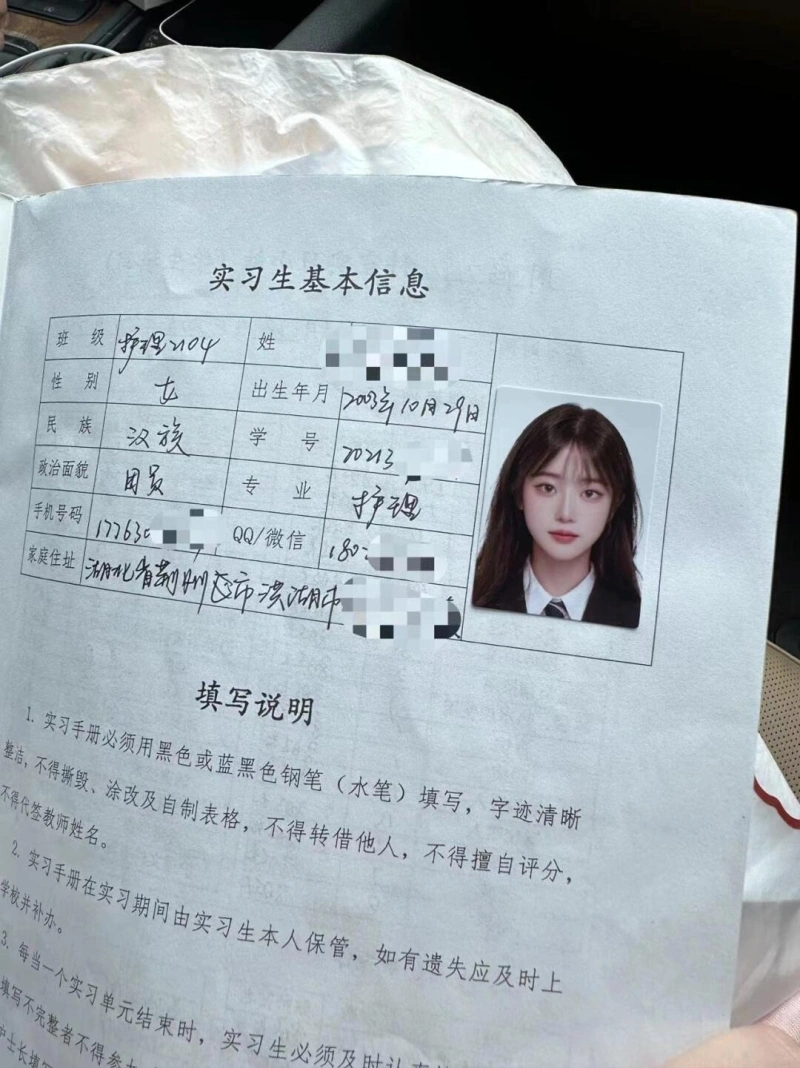 实习生基本信息
班 级 护理2104 姓
性 别 女 出生年月 2003年10月29日
民 族 汉族 学 号 20213
政治面貌 团员 专 业 护理
手机号码 17763 QQ/微信 180
家庭住址 湖北省荆州 市洪湖市
填写说明
1. 实习手册必须用黑色或蓝黑色钢笔（水笔）填写，字迹清晰
整洁，不得撕毁、涂改及自制表格，不得转借他人，不得擅自评分，
不得代签教师姓名。
2. 实习手册在实习期间由实习生本人保管，如有遗失应及时上
学校并补办。
3. 每当一个实习单元结束时，实习生必须及时认真
填写不完整者不得参
护士长填